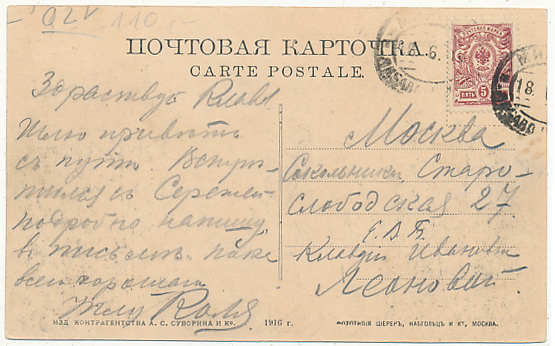 110.-
ПОЧТОВАЯ КАРТОЧКА.
CARTE POSTALE.
Здраствуй Клавя
Шлю приветъ
съ пути. Встре-
тился съ Сережей
подробно напишу
въ письмѣ. пока
всего хорошаго
Жму Коля
Москва
Сокольники Старо-
слободская 27
Клавдiи Ивановнѣ
Леоновой
ПОЧТОВАЯ МАРКА
ПЯТЬ 5
18
6
18
ИЗД. КОНТРАГЕНТСТВА А. С. СУВОРИНА И Ко. 1916 г. ФОТОТИПIЯ ШЕРЕРЪ, НАБГОЛЬЦЪ И Ко, МОСКВА.